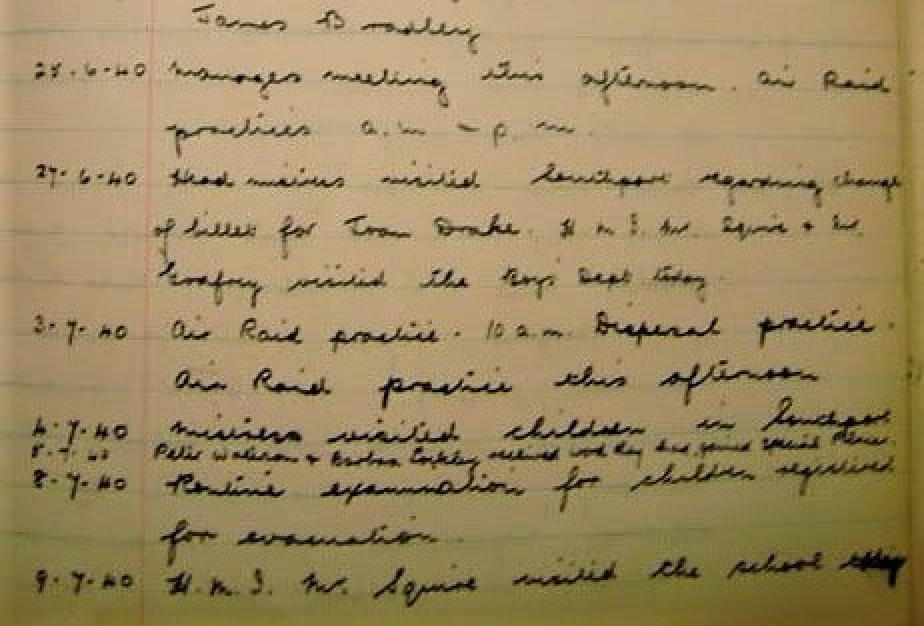 James Bradley
25.6.40 Managers meeting this afternoon. Air Raid
practices a.m - p.m.
27.6.40 Head mistress visited Southport regarding change
of billet for Joan Drake. H.M.I. Mr. Squire + Mr.
Godfrey visited the Boys Dept today
3.7.40 Air Raid practice. 10 a.m. Dispersal practice.
Air Raid practice this afternoon
4.7.40 Mistress visited children in Southport
Peter + Barbara
8.7.40 Routine examination for children registered
for evacuation.
9.7.40 H.M.I. Mr. Squire visited the school